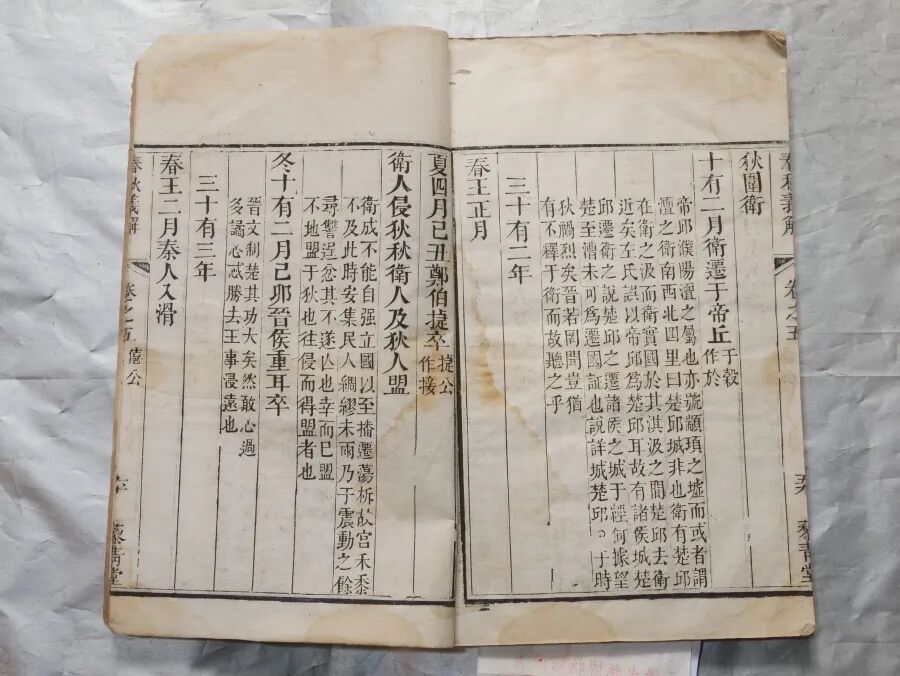 狄圍衛
十有二月衛遷于帝丘于穀作於
帝邱濮陽澶之屬也亦號顓頊之墟而或者謂
澶之衛南西北四里曰楚邱城非也衛有楚邱
在衛之汲而衛實國於其淇汲之間楚邱去衛
近矣左氏誤以帝邱爲楚邱耳故有諸侯城楚
邱遷衛之說楚邱之遷諸侯之城于經何據望
楚至漕未可爲遷國証也說詳城楚邱。于時
狄禍烈矣晉若罔聞豈猶
有不釋于衛而故聽之乎
三十有二年
春王正月
夏四月己丑鄭伯捷卒捷公作接
衛人侵狄秋衛人及狄人盟
衛成不能自强立國以至播遷蕩柝故宫禾黍
不及此時安集民人綢繆未雨乃于震動之餘
尋讐逞忿其不遂凶也幸而已盟
不地盟于狄也往侵而得盟者也
冬十有二月己卯晉侯重耳卒
晉文制楚其功大矣然敢心過
多譎心忒勝去王事浸遠也
三十有三年
春王二月秦人入滑
春秋義解
卷之五
僖公